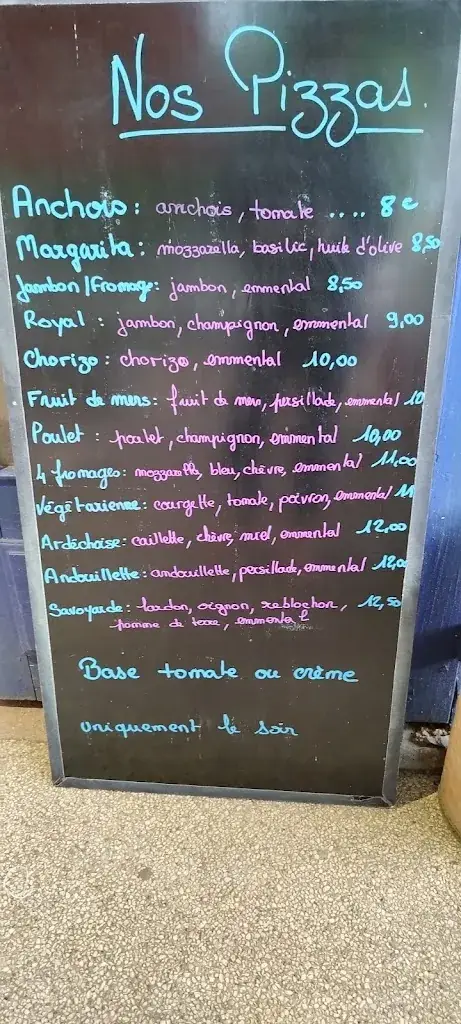 Nos Pizzas.
Anchois : anchois, tomate .... 8 €
Margarita : mozzarella, basilic, huile d'olive 8,50
Jambon/Fromage : jambon, emmental 8,50
Royal : jambon, champignon, emmental 9,00
Chorizo : chorizo, emmental 10,00
. Fruit de mers : fruit de mers, persillade, emmental 10
Poulet : poulet, champignon, emmental 10,00
4 fromages : mozzarella, bleu, chèvre, emmental 11,00
Végétarienne : courgette, tomate, poivron, emmental 11
Ardéchoise : caillette, chèvre, miel, emmental 12,00
Andouillette : andouillette, persillade, emmental 12,00
Savoyarde : lardon, oignon, reblochon, 12,50
pomme de terre, emmental
Base tomate ou crème
uniquement le soir